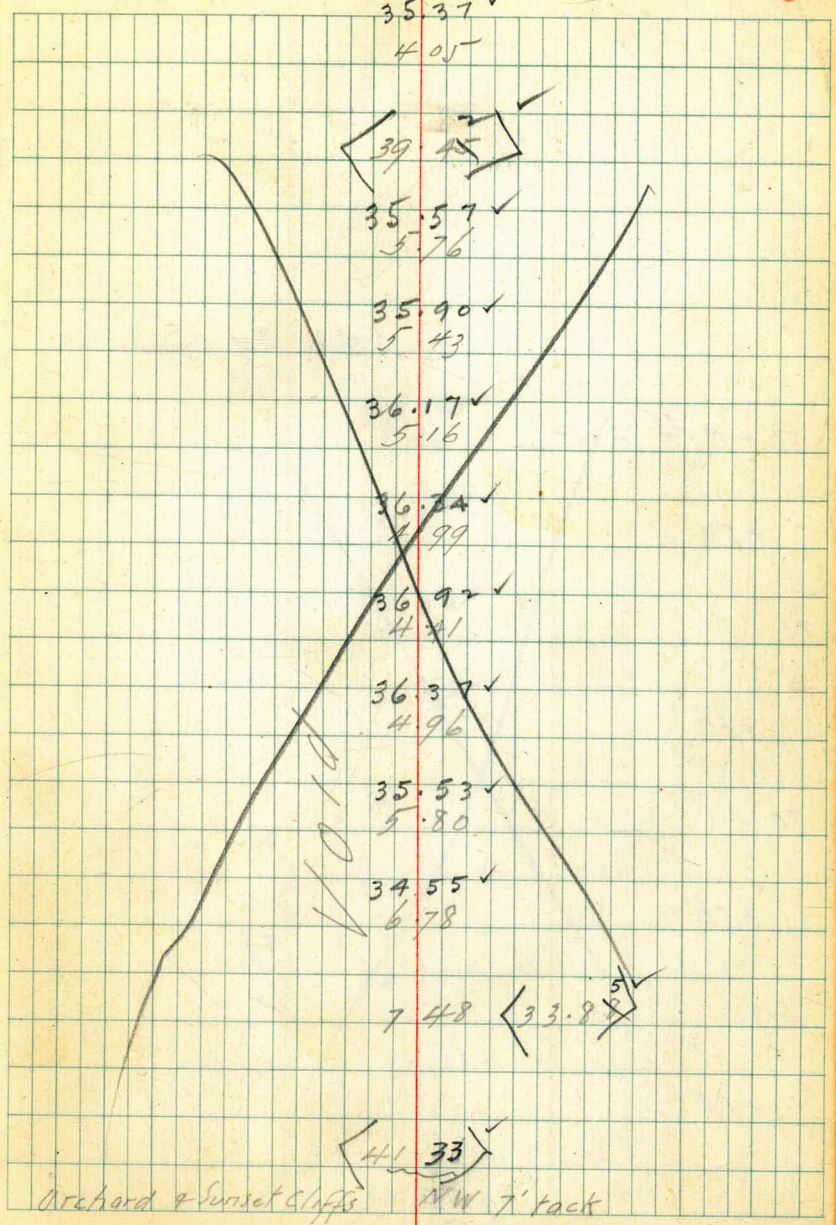 35.37 ✓
4 05
<39.42> ✓
35.57 ✓
5.76
35.90 ✓
5 43
36.17 ✓
5.16
36.34 ✓
4.99
36 92 ✓
4.41
36.37 ✓
4.96
35.53 ✓
5.80
34 55 ✓
6.78
7 48 <33.85> ✓
<41 33> ✓
Orchard & Sunset Cliffs NW 7' tack
Void